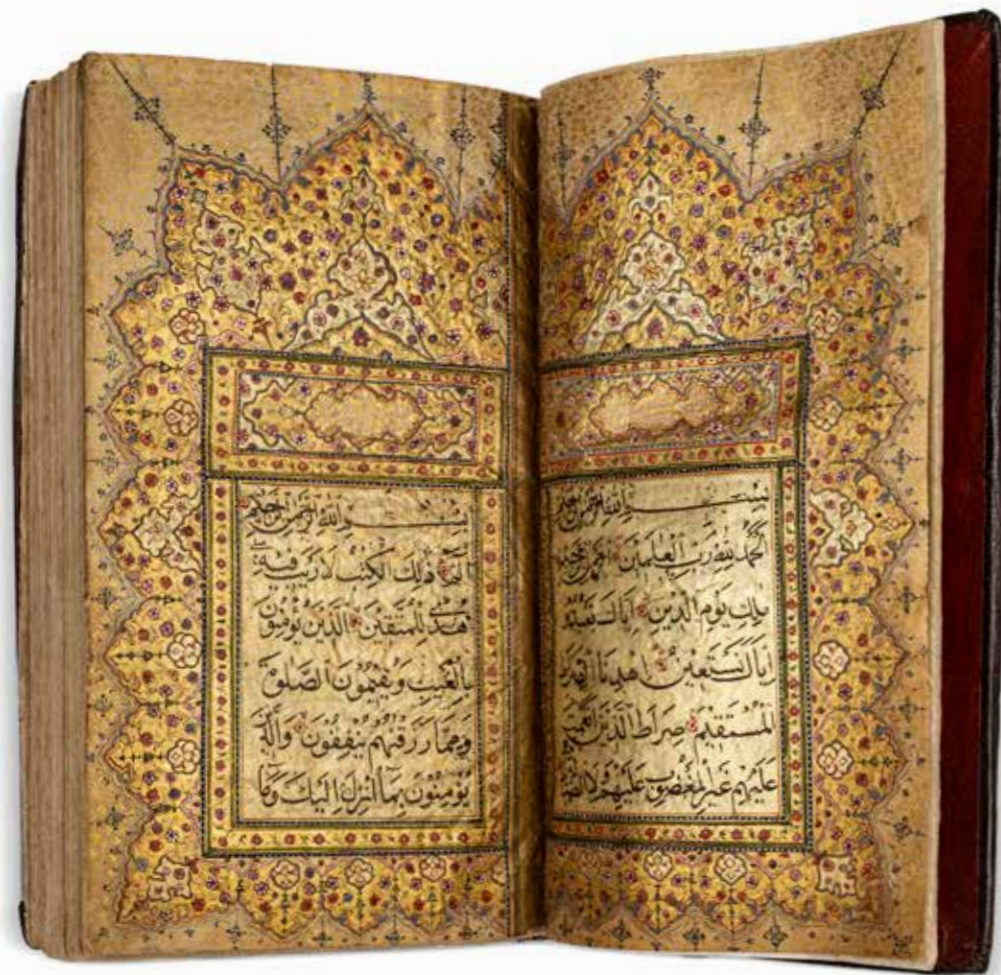 بسم الله الرحمن الرحيم
الحمد لله رب العلمين الرحمن الرحيم
ملك يوم الدين اياك نعبد
واياك نستعين اهدنا الصراط
المستقيم صراط الذين انعمت
عليهم غير المغضوب عليهم ولا الضالين
بسم الله الرحمن الرحيم
الم ذلك الكتب لا ريب فيه
هدى للمتقين الذين يؤمنون
بالغيب ويقيمون الصلوة
ومما رزقنهم ينفقون والذين
يؤمنون بما انزل اليك وما